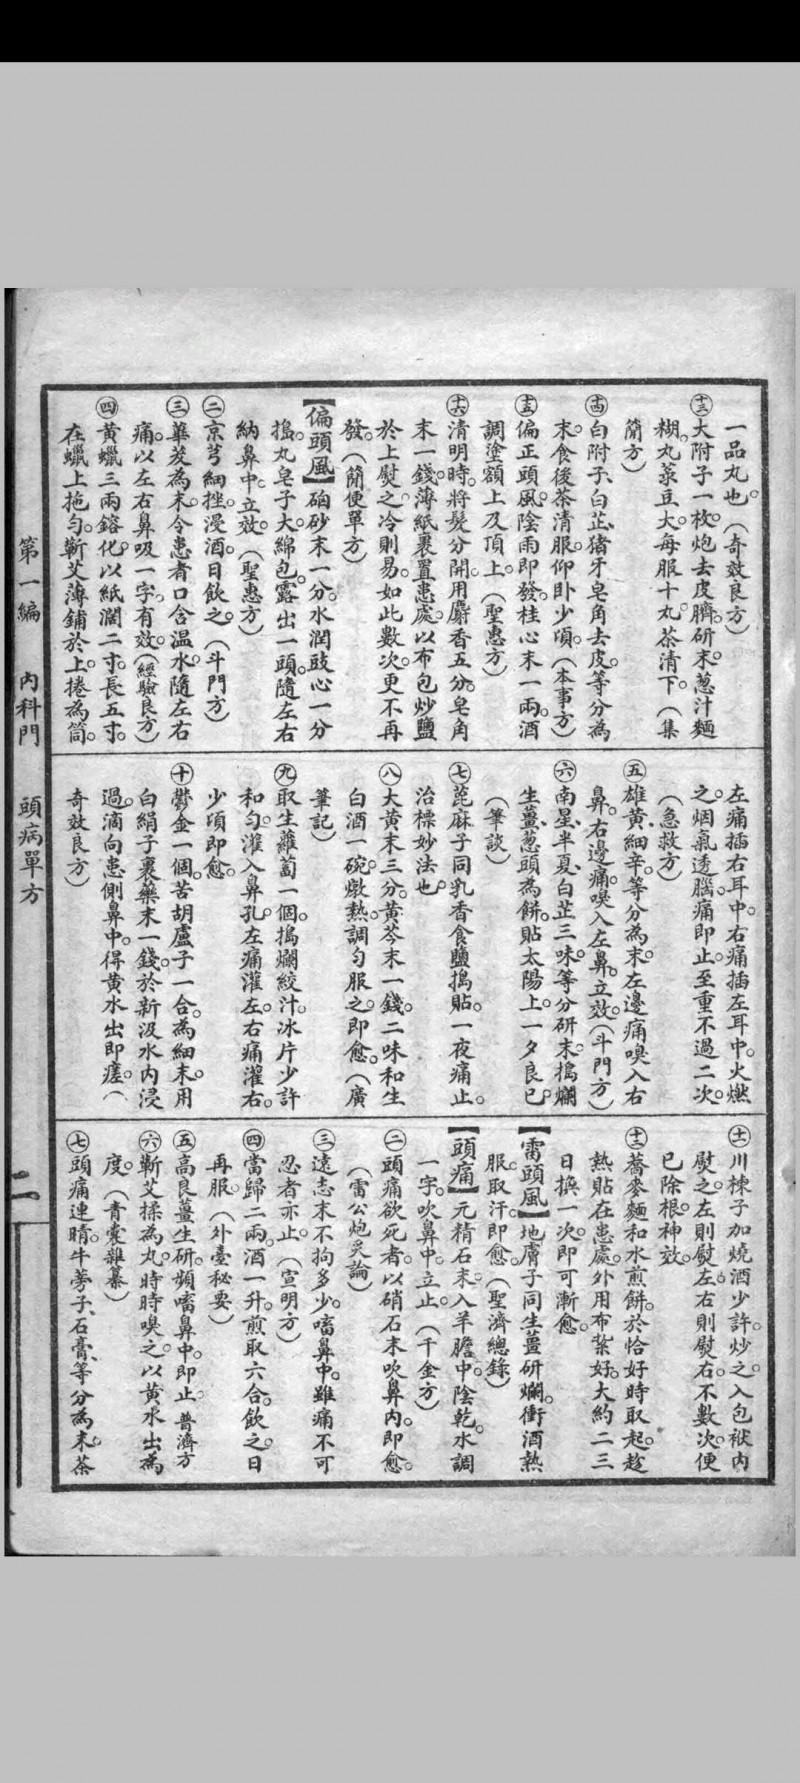 一品丸也。(奇效良方)
㊂大附子一枚。炮去皮臍。研末。葱汁麵
糊丸菉豆大。每服十丸。茶清下。(集
簡方)
㊃白附子、白芷、猪牙皂角去皮。等分為
末。食後茶清服。仰卧少頃。(本事方)
㊄偏正頭風。陰雨即發。桂心末一兩。酒
調塗額上及頂上。(聖惠方)
十六清明時。將髮分開。用麝香五分。皂角
末一錢。薄紙裹置患處。以布包炒鹽
於上熨之。冷則易。如此數次。更不再
發。(簡便單方)
【偏頭風】硇砂末一分。水潤豉心一分
搗丸皂子大。綿包。露出一頭。隨左右
納鼻中。立效。(聖惠方)
㊁京芎細挫。浸酒。日飲之。(斗門方)
㊂蓽茇為末。令患者口含温水。隨左右
痛。以左右鼻吸一字。有效。(經驗良方)
㊃黄蠟三兩鎔化。以紙濶二寸。長五寸。
在蠟上拖勻。蘄艾薄鋪於上。捲為筒。
左痛插右耳中。右痛插左耳中。火燃
之。烟氣透腦。痛即止。至重不過二次。
(急救方)
㊄雄黄細辛。等分為末。左邊痛嗅入右
鼻。右邊痛嗅入左鼻。立效。(斗門方)
㊅南星、半夏、白芷三味。等分研末。搗爛
生薑葱頭為餅。貼太陽上。一夕良已
(筆談)
㊆蓖麻子同乳香食鹽搗貼。一夜痛止。
治標妙法也。
㊇大黄末三分。黄芩末一錢。二味和生
白酒一碗。燉熱。調勻服之。即愈。(廣
筆記)
㊈取生蘿蔔一個。搗爛絞汁。冰片少許
和勻。灌入鼻孔。左痛灌左。右痛灌右。
少頃即愈。
㊉鬱金一個。苦胡盧子一合。為細末。用
白絹子裹藥末一錢。於新汲水内浸
過。滴向患側鼻中。得黄水出即瘥。(
奇效良方)
十一川楝子加燒酒少許。炒之。入包袱内
熨之。左則熨左。右則熨右。不數次便
已除根。神效。
十二蕎麥麵和水煎餅。於恰好時取起。趁
熱貼在患處。外用布紮好。大約二三
日換一次。即可漸愈。
【雷頭風】地膚子同生薑研爛。衝酒熱
服。取汗即愈。(聖濟總錄)
【頭痛】元精石末。入羊膽中陰乾。水調
一字。吹鼻中。立止。(千金方)
㊁頭痛欲死者。以硝石末吹鼻内。即愈。
(雷公炮炙論)
㊂遠志末不拘多少。嗜鼻中。雖痛不可
忍者亦止。(宣明方)
㊃當歸二兩。酒一升。煎取六合。飲之。日
再服。(外臺秘要)
㊄高良薑生研。頻嗜鼻中。即止。普濟方
㊅蘄艾揉為丸。時時嗅之。以黄水出為
度。(青囊雜纂)
㊆頭痛連睛。牛蒡子、石膏、等分為末。茶
第一編 内科門 頭病單方
二